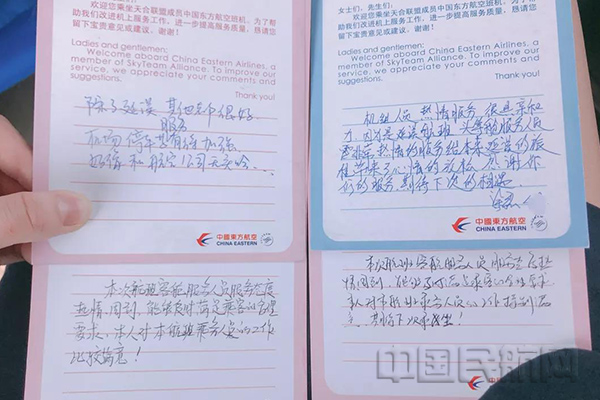 欢迎您乘坐天合联盟成员中国东方航空班机。为了帮
助我们改进机上服务工作,进一步提高服务质量,恳请您
留下宝贵意见或建议。谢谢!
Ladies and gentlemen:
Welcome aboard China Eastern Airlines, a
member of SkyTeam Alliance. To improve our
service, we appreciate your comments and
suggestions.
Thank you!
除了延误 其他都很好
服务
机场停车 加强
和航空公司无关
中國東方航空
CHINA EASTERN
女士们、先生们:
欢迎您乘坐天合联盟成员中国东方航空班机。为了帮
助我们改进机上服务工作,进一步提高服务质量,恳请您
留下宝贵意见或建议。谢谢!
Ladies and gentlemen:
Welcome aboard China Eastern Airlines, a
member of SkyTeam Alliance. To improve our
service, we appreciate your comments and
suggestions.
Thank you!
机组人员热情服务 很是亲和
力,因为是延误航班 头等舱服务人员
非常热情的服务给本来延误的旅
程带来了心情的放松 感谢你
们的服务,期待下次的相遇
中國東方航空
CHINA EASTERN
本次航班客舱服务人员服务态度
热情、周到,能够良好满足乘客的合理
要求,本人对本航班乘务人员的工作
比较满意!
本次航班客舱服务人员服务态度热
情周到,
本人对本航班乘务人员的工作特别满
意,期待下次乘坐!
中國東方航空
中国民航网